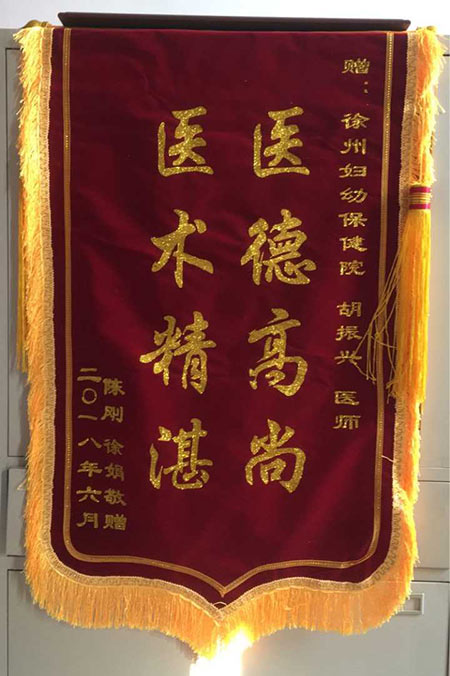 赠：徐州妇幼保健院 胡振兴 医师
医德高尚
医术精湛
陈刚 徐娟敬赠
二〇一八年六月